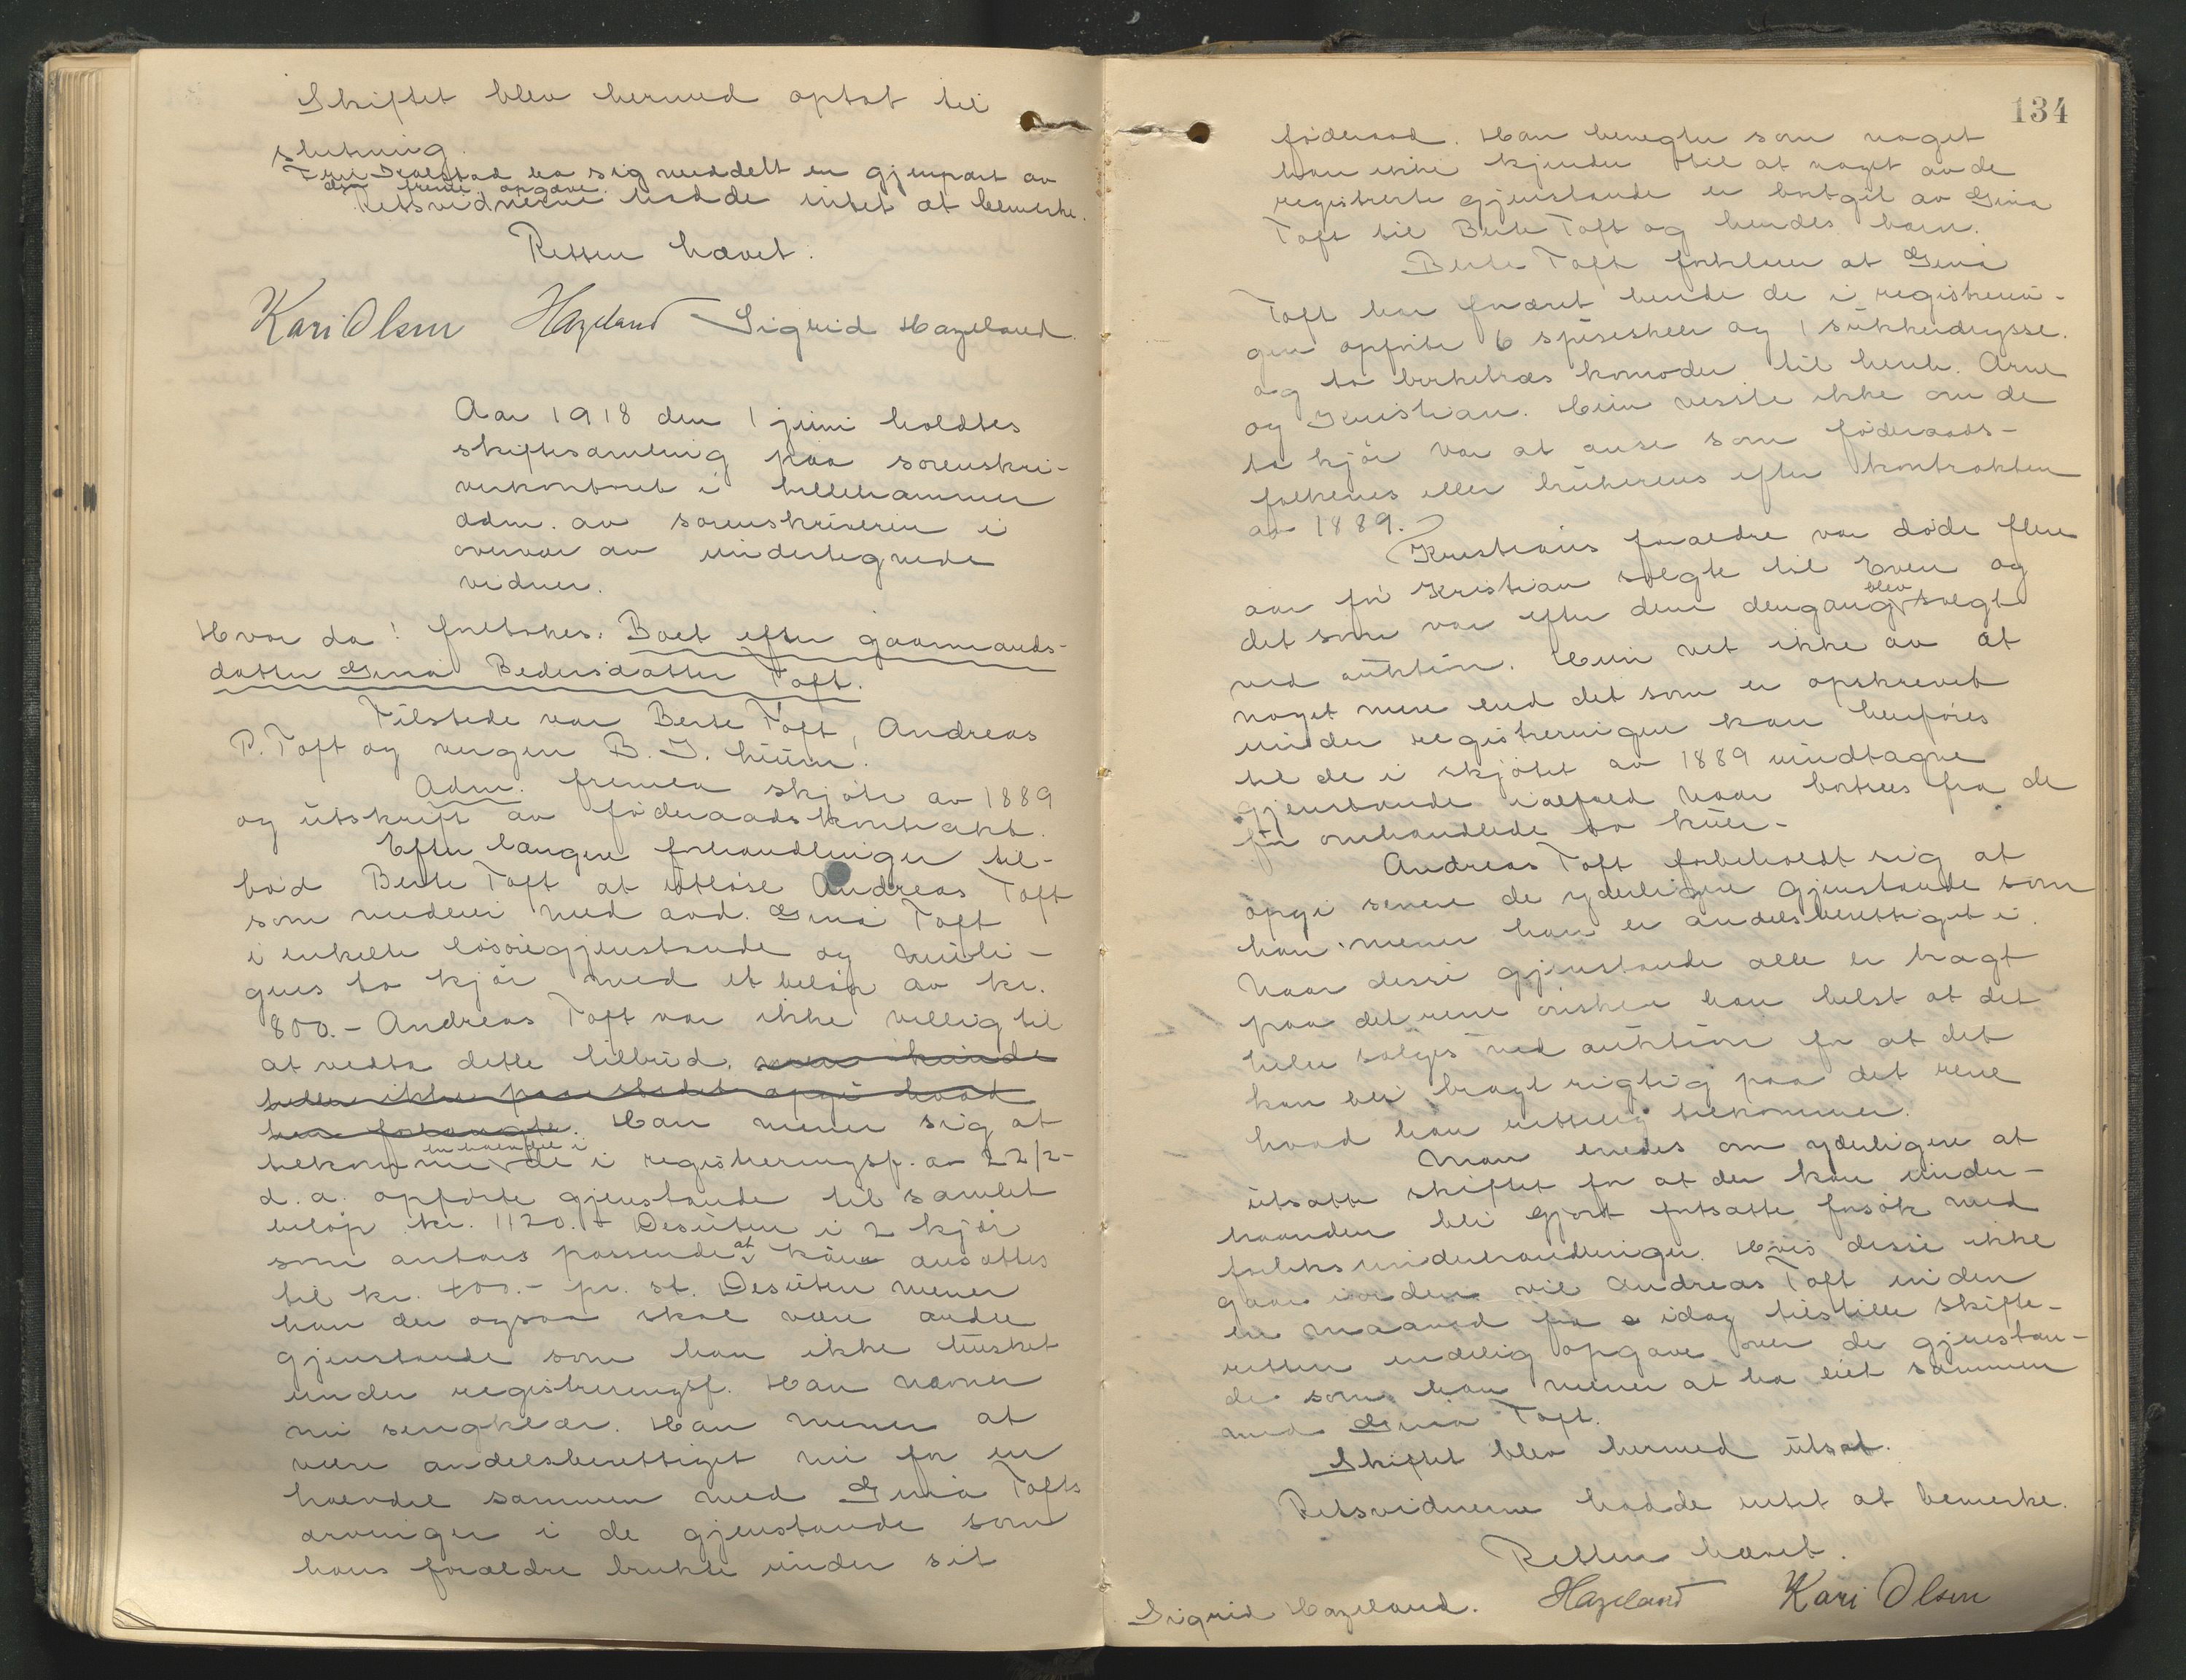 Skiftet blev hermed optat til
slutning.
Fru Skolstad ba sig meddelt en gjenpart av
den frem. opgave.
Retsvidnerne hadde intet at bemerke.
Retten hævet.
Kari Olsen Hazeland Sigrid Hazeland.
Aar 1918 den 1 juni holdtes
skiftesamling paa sorenskri-
verkontoret i Lillehammer
adm. av sorenskriveren i
overvær av undertegnede
vidner.
Hvor da! foretokes: Boet efter gaarmands-
datter Gina Pedersdatter Toft.
Tilstede var Berte Toft, Andreas
P. Toft og vergen B. J. Lium.
Adm. fremla skjøte av 1889
og utskrift av føderaadskontrakt.
Efter længere forhandlinger til-
bød Berte Toft at utløse Andreas Toft
som medeier med avd. Gina Toft
i enkelte løsøregjenstande og muli-
gens to kjør med et beløp av kr.
800.- Andreas Toft var ikke villig til
at vedta dette tilbud, men kunde
heller ikke paa stedet opgi hvad
han forlangte. Han mener sig at
tilkomme en halvdel i de i registreringsf. av 22/2-
d. a. opførte gjenstande til samlet
beløp kr. 1120.- Desuten i 2 kjør
som antas passende at kunne ansættes
til kr. 400.- pr. st. Desuten mener
han der ogsaa skal være andre
gjenstande som han ikke husket
under registreringsf. Han nævner
nu sengklær. Han mener at
være andelsberettiget nu for en
halvdel sammen med Gina Tofts
arvinger i de gjenstande som
hans forældre brukte under sit
134
føderaad. Han benegter som noget
han ikke kjender til at noget av de
registrerte gjenstande er bortgit av Gina
Toft til Berte Toft og hendes barn.
Berte Toft forklarer at Gina
Toft har foræret hende de i registrerin-
gen opførte 6 spiseskeer og 1 sukkerdrysse.
og to birketræs komoder til hendes Arne
og Kristian. Hun visste ikke om de
to kjør var at anse som føderaads-
folkenes eller brukerens efter kontrakten
av 1889.
Kristians forældre var døde flere
aar før Kristian solgte til Even og
det som var efter dem dengang blev solgt
ved auktion. Hun vet ikke av at
noget mere end det som er opskrevet
under registreringen kan henføres
til de i skjøtet av 1889 undtagne
gjenstande ialfald naar bortsees fra de
før omhandlede to kuer.
Andreas Toft forbeholdt sig at
opgi senere de yderligere gjenstande som
han mener han er andelsberettiget i.
Naar disse gjenstande alle er bragt
paa det rene ønsker han helst at det
hele sælges ved auktion for at det
kan bli bragt rigtig paa det rene
hvad han rettelig tilkommer.
Man enedes om yderligere at
utsætte skiftet for at der kan under-
haanden bli gjort fortsatte forsøk med
forliksunderhandlinger. Hvis disse ikke
gaar iorden vil Andreas Toft inden
en maaned fra idag tilstille skifte-
retten endelig opgave over de gjenstan-
de som han mener at ha eiet sammen
med Gina Toft.
Skiftet blev hermed utsat.
Retsvidnerne hadde intet at bemerke.
Retten hævet.
Sigrid Hazeland. Hazeland Kari Olsen